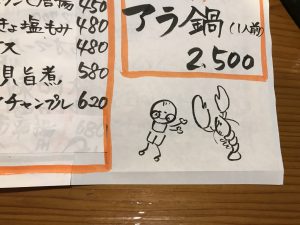 450
きょ塩もみ 480
ス 480
貝旨煮 580
チャンプル 620
アラ鍋 (1人前)
2,500